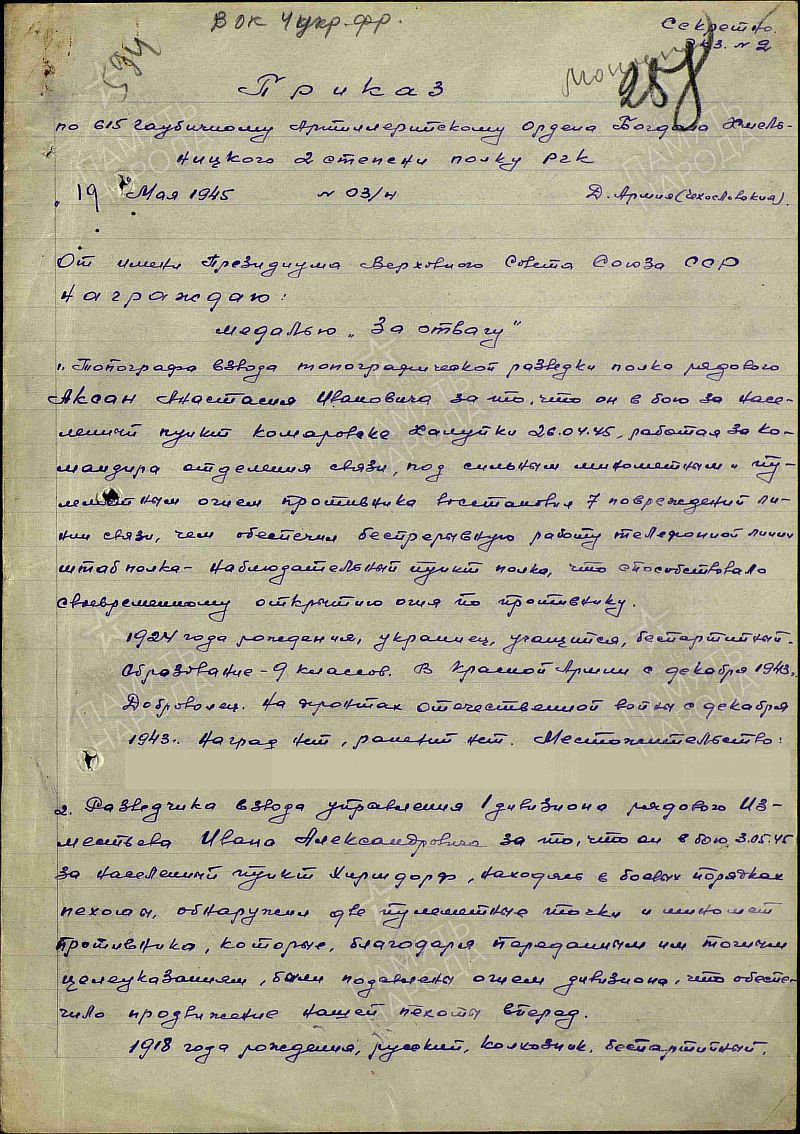 В ОК 4 укр. фр.
Секретно.
Экз. № 2
594
258
Приказ
по 615 Гаубичному Артиллерийскому Ордена Богдана Хмель-
ницкого 2 степени полку РГК
"19" Мая 1945 № 03/н Д. Армия (Чехословокия).
От имени Президиума Верховного Совета Союза ССР
Награждаю:
медалью "За отвагу"
1. Топографа взвода топографической разведки полка рядового
Аксан Анастасия Ивановича за то, что он в бою за насе-
ленный пункт Комаровске Халупки 26.04.45, работая за ко-
мандира отделения связи, под сильным минометным и пу-
леметным огнем противника восстановил 7 повреждений ли-
нии связи, чем обеспечил беспрерывную работу телефонной линии
штаб полка - наблюдательный пункт полка, что способствовало
своевременному открытию огня по противнику.
1924 года рождения, украинец, учащийся, беспартийный.
Образование - 9 классов. В Красной Армии с декабря 1943.
Доброволец. На фронтах отечественной войны с декабря
1943. Наград нет, ранений нет. Местожительство:
2. Разведчика взвода управления 1 дивизиона рядового Из-
местьева Ивана Александровича за то, что он в бою 3.05.45
за населенный пункт Хиршдорф, находясь в боевых порядках
пехоты, обнаружил две пулеметные точки и миномет
противника, которые, благодаря переданным им точным
целеуказаниям, были подавлены огнем дивизиона, что обеспе-
чило продвижение нашей пехоты вперед.
1918 года рождения, русский, колхозник, беспартийный,
ПАМЯТЬ НАРОДА